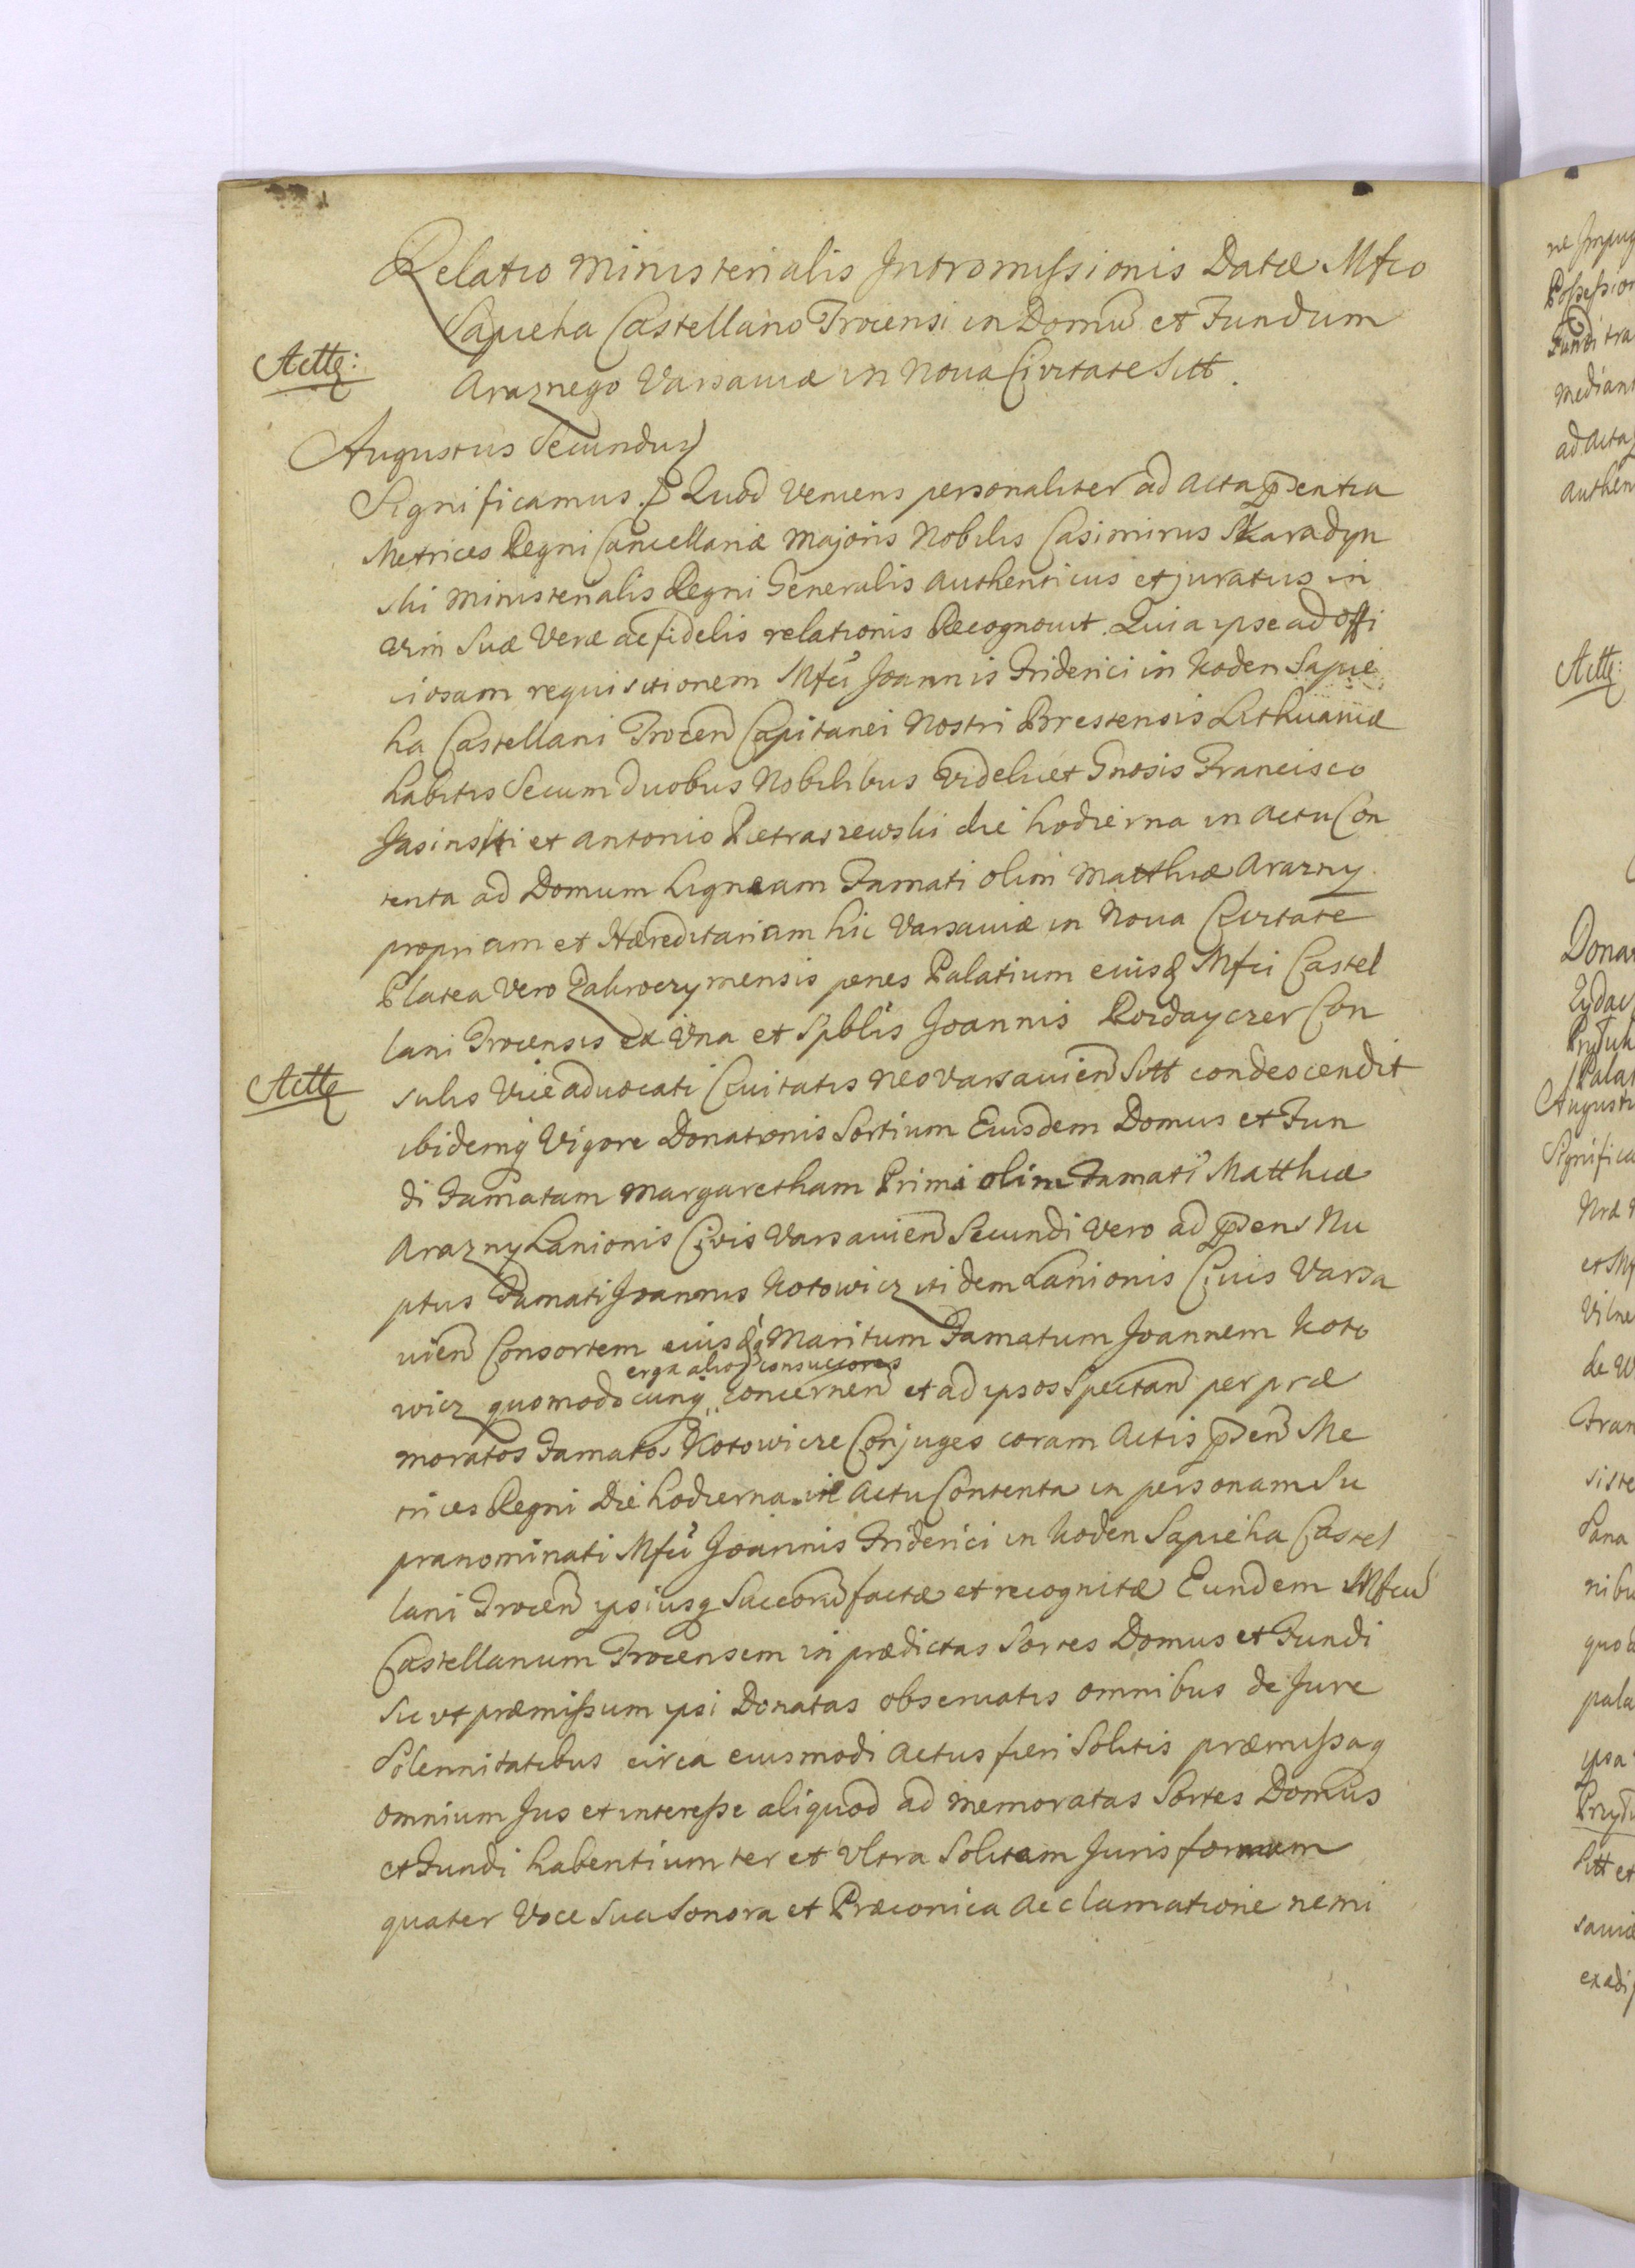 Relatio Ministerialis Intromissionis Datæ Mfco
Sapieha Castellano Trocensi in Domū et Fundum
Actꝗ:
Araznego Varsaviæ in Nova Civitate Sitt.
Augustus Secundus
Significamus. Quod veniens personaliter ad Acta p̄sentia
Metrices Regni Cancellariæ Majoris Nobilis Casimirus Skaradyn
ski Ministerialis Regni Generalis authenticus et juratus in
vim Suæ Veræ ac fidelis relationis Recognovit. Quia ipse ad offi
ciosam requisitionem Mfci Joannis Friderici in Koden Sapie
ha Castellani Trocen̄ Capitanei Nostri Brestensis Lithuaniæ
habitis Secum Duobus Nobilibus videlicet Gnosis Francisco
Jasinski et Antonio Pietraszewski die hodierna in Actu Con
tenta ad Domum Ligneam Famati olim Matthiæ Arazny
propriam et Hæreditariam hic Varsaviæ in Nova Civitate
Platea Vero Zakroczymensis penes Palatium eiusd Mfci Castel
lani Trocensis ex Una et Spblis Joannis Consulis
Actꝗ
sulis Viceadvocati Civitatis Neo Varsavien̄ Sitt condescendit
ibidemq Vigore Donationis Sortium Eiusdem Domus et Fun
di Famatam Margaretham Primi olim Famati Matthiæ
Arazny Lanionis Civis Varsavien̄ Secundi Vero ad p̄sens Nu
ptus Famati Joannis Kotowicz itidem Lanionis Civis Varsa
vien̄ Consortem eiusdq Maritum Famatum Joannem Koto
erga alios consuccores
wicz quomodocunq concernen̄ et ad ipsos Spectan̄ per præ
moratos Famatos Kotowicze Conjuges coram Actis p̄sen̄ Me
trices Regni Die hodierna in Actu Contenta in personam Su
pranominati Mfci Joannis Friderici in Koden Sapieha Castel
lani Trocen̄ ipsiusq Succorū factæ et recognitæ Eundem Mfcū
Castellanum Trocensem in prædictas Sortes Domus et Fundi
Sic ut præmissum ipsi Donatas observatis omnibus de Jure
Solennitatibus circa eiusmodi Actus fieri Solitis præmissaq
omnium Jus et interesse aliquod ad memoratas Sortes Domus
et Fundi habentium ter et Ultra Solitam Juris formam
quater Voce Sua Sonora et Præconica Acclamatione nemi
ne Impug
Possession
Fundi tra
mediant
ad Acta
authen
Actꝗ:
Donat
Palat
Augustu
Significa
Vilne
de W
Fran
siste
nibu
quod
pala
ipsa
Sitt et
saviæ